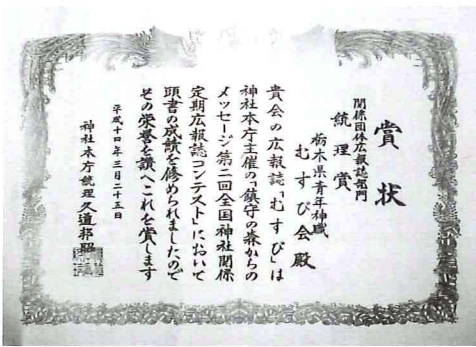 賞状
関係団体広報誌部門
統理賞
栃木県青年神職
むすび会殿
貴会の広報誌「むすび」は
神社本庁主催の「鎮守の森からの
メッセージ第二回全国神社関係
定期広報誌コンテスト」において
頭書の成績を修められましたので
その栄誉を讃へこれを賞します
平成十四年三月二十五日
神社本庁統理久邇邦昭